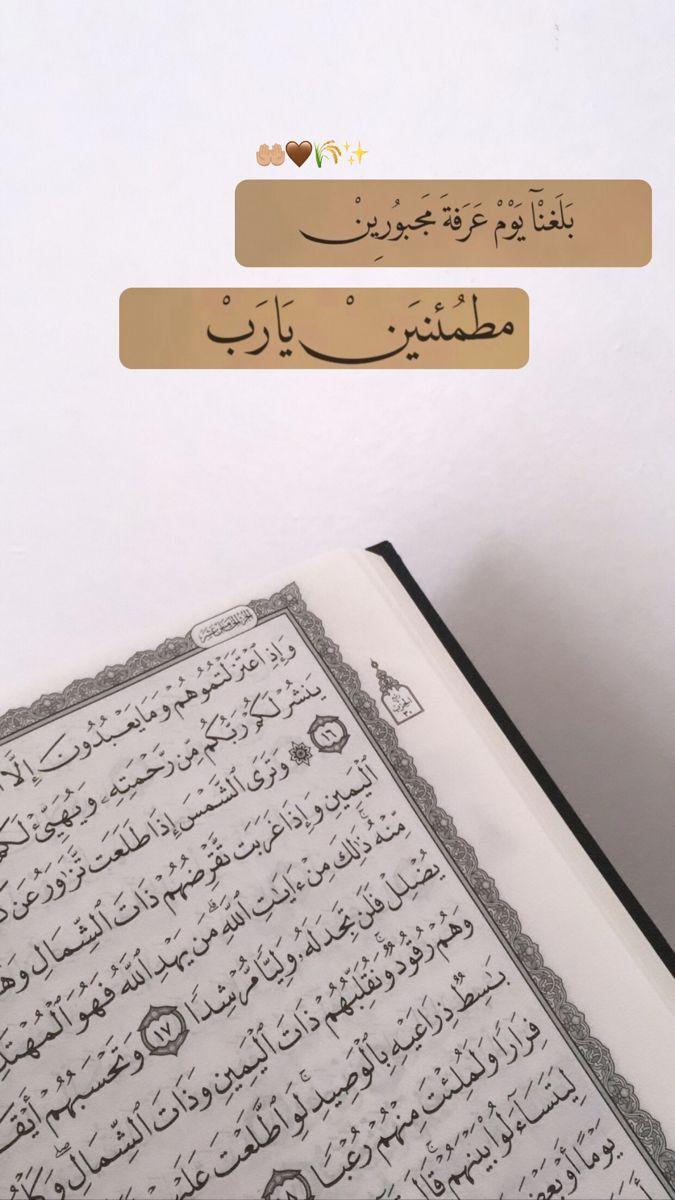 🤲🏼🤎🌾✨
بَلَغنْآ يَوْمْ عَرَفةَ مَجبوُرِينْ
مطمُئنيَنْ يَارَبْ
الجزء الخامس عشر
وَإِذِ ٱعۡتَزَلۡتُمُوهُمۡ وَمَا يَعۡبُدُونَ إِلَّا
يَنشُرۡ لَكُمۡ رَبُّكُم مِّن رَّحۡمَتِهِۦ وَيُهَيِّئۡ لَكُم
١٦ ۞ وَتَرَى ٱلشَّمۡسَ إِذَا طَلَعَت تَّزَٰوَرُ عَن
ٱلۡيَمِينِ وَإِذَا غَرَبَت تَّقۡرِضُهُمۡ ذَاتَ ٱلشِّمَالِ
مِّنۡهُۚ ذَٰلِكَ مِنۡ ءَايَٰتِ ٱللَّهِۗ مَن يَهۡدِ ٱللَّهُ فَهُوَ ٱلۡمُهۡتَدِ
يُضۡلِلۡ فَلَن تَجِدَ لَهُۥ وَلِيّٗا مُّرۡشِدٗا ١٧ وَتَحۡسَبُهُمۡ
وَهُمۡ رُقُودٞۚ وَنُقَلِّبُهُمۡ ذَاتَ ٱلۡيَمِينِ وَذَاتَ ٱلشِّمَالِۖ
بَٰسِطٞ ذِرَاعَيۡهِ بِٱلۡوَصِيدِۚ لَوِ ٱطَّلَعۡتَ
فِرَارٗا وَلَمُلِئۡتَ مِنۡهُمۡ رُعۡبٗا ١٨
لِيَتَسَآءَلُواْ بَيۡنَهُمۡۚ قَالَ
يَوۡمًا أَوۡ بَعۡضَ